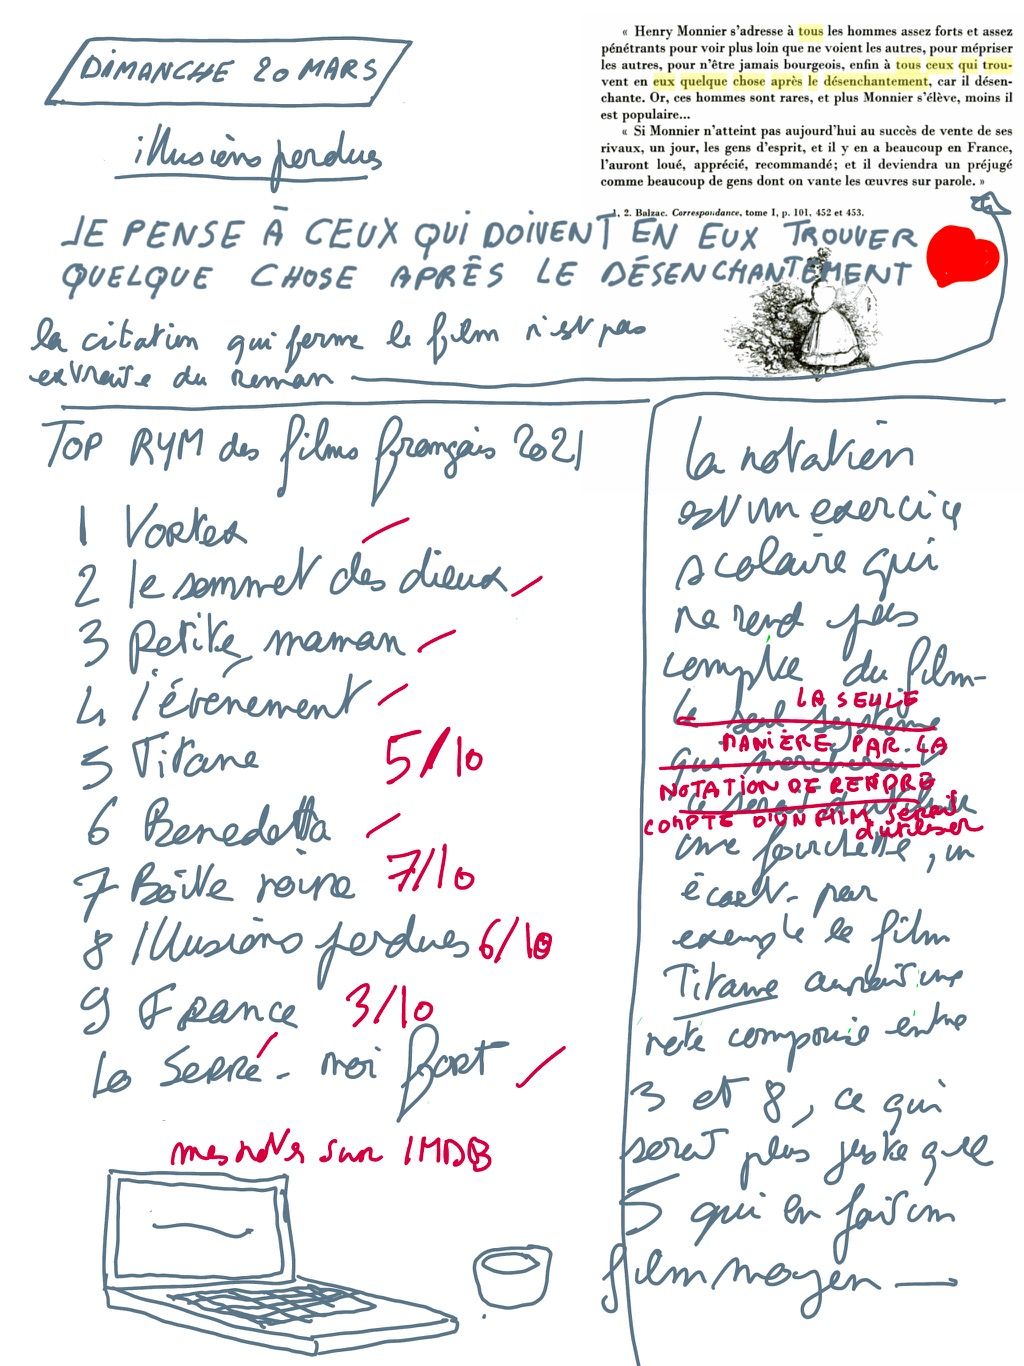 DIMANCHE 20 MARS
illusions perdues
« Henry Monnier s'adresse à tous les hommes assez forts et assez
pénétrants pour voir plus loin que ne voient les autres, pour mépriser
les autres, pour n'être jamais bourgeois, enfin à tous ceux qui trou-
vent en eux quelque chose après le désenchantement, car il désen-
chante. Or, ces hommes sont rares, et plus Monnier s'élève, moins il
est populaire...
« Si Monnier n'atteint pas aujourd'hui au succès de vente de ses
rivaux, un jour, les gens d'esprit, et il y en a beaucoup en France,
l'auront loué, apprécié, recommandé; et il deviendra un préjugé
comme beaucoup de gens dont on vante les œuvres sur parole. »
1, 2. Balzac. Correspondance, tome I, p. 101, 452 et 453.
JE PENSE À CEUX QUI DOIVENT EN EUX TROUVER
QUELQUE CHOSE APRÈS LE DÉSENCHANTEMENT
la citation qui ferme le film n'est pas
extraite du roman
TOP RYM des films français 2021
1 Vortex
2 le sommet des dieux
3 Petite maman
4 l'événement
5 Titane 5/10
6 Benedetta
7 Boîte noire 7/10
8 Illusions perdues 6/10
9 France 3/10
10 Serre-moi fort
mes notes sur IMDB
la notation
est un exercice
scolaire qui
ne rend pas
compte du film-
Le seul système
LA SEULE
MANIÈRE PAR LA
NOTATION DE RENDRE
COMPTE D'UN FILM serait
d'utiliser
une fourchette, un
écart - par
exemple le film
Titane aurait une
note comprise entre
3 et 8, ce qui
serait plus juste que
5 qui en fait un
film moyen